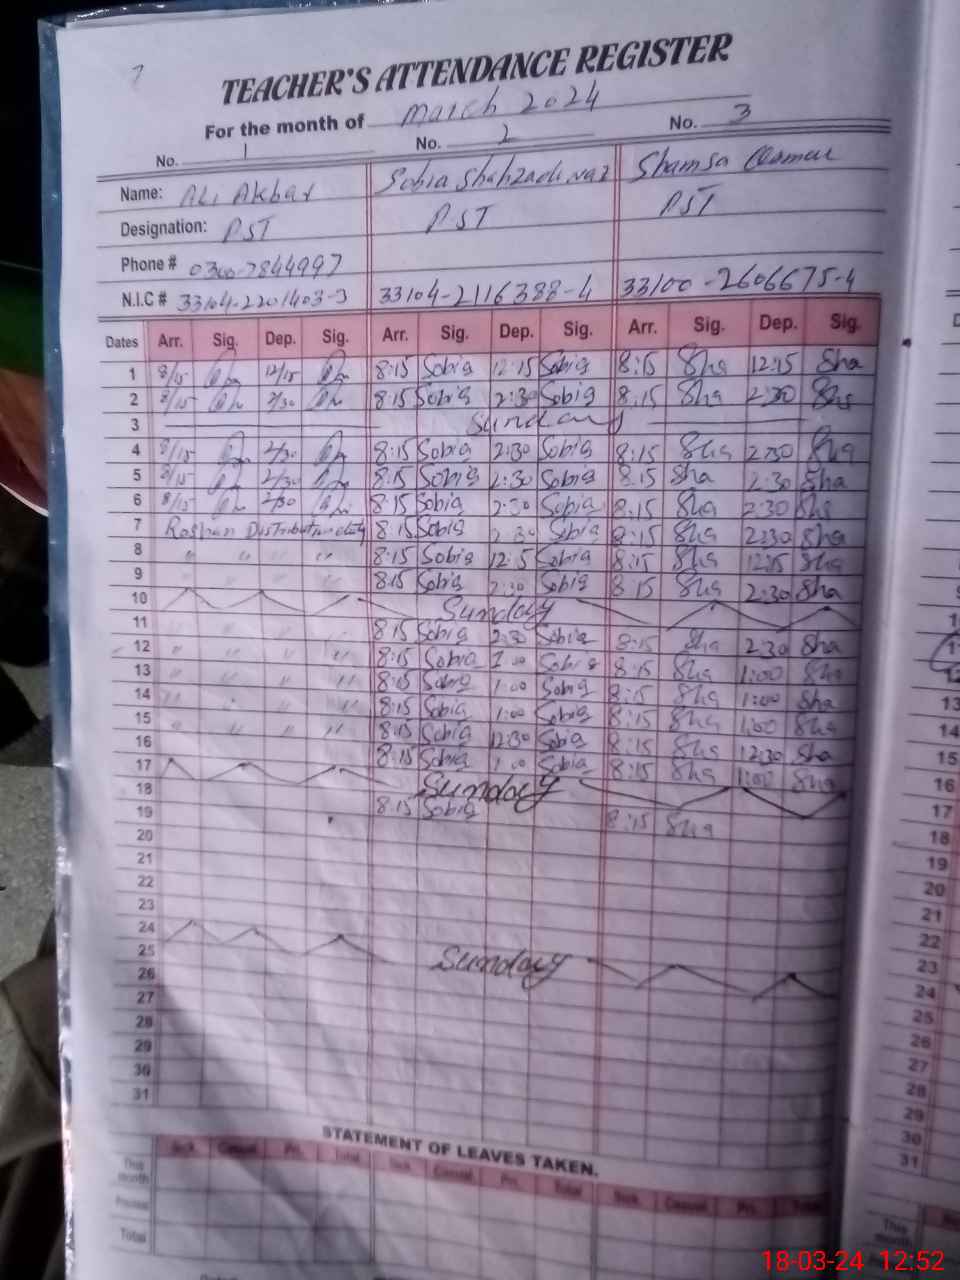 7
TEACHER'S ATTENDANCE REGISTER
For the month of March 2024
No. 1 No. 2 No. 3
Name: Ali Akbar Sobia Shahzadi Naz Shamsa
Designation: PST PST PST
Phone # 0300-7844997
N.I.C # 33104-2201403-3 33104-2116388-4 33100-2606675-4
Dates Arr. Sig. Dep. Sig. Arr. Sig. Dep. Sig. Arr. Sig. Dep. Sig.
1 8/15 12/15 8:15 Sobia 12:15 Sobia 8:15 Sha 12:15 Sha
2 8/15 2/30 8:15 Sobia 2:30 Sobia 8:15 Sha 2:30 Sha
3 Sunday
4 8/15 2/30 8:15 Sobia 2:30 Sobia 8:15 Sha 2:30 Sha
5 8/15 2/30 8:15 Sobia 2:30 Sobia 8:15 Sha 2:30 Sha
6 8/15 2/30 8:15 Sobia 2:30 Sobia 8:15 Sha 2:30 Sha
7 Rashan Distribution duty 8:15 Sobia 2:30 Sobia 8:15 Sha 2:30 Sha
8 " " " 8:15 Sobia 12:15 Sobia 8:15 Sha 12:15 Sha
9 " " " 8:15 Sobia 2:30 Sobia 8:15 Sha 2:30 Sha
10 Sunday
11 " " " 8:15 Sobia 2:30 Sobia 8:15 Sha 2:30 Sha
12 " " " 8:15 Sobia 1:00 Sobia 8:15 Sha 1:00 Sha
13 " " " 8:15 Sobia 1:00 Sobia 8:15 Sha 1:00 Sha
14 " " " 8:15 Sobia 1:00 Sobia 8:15 Sha 1:00 Sha
15 " " " 8:15 Sobia 12:30 Sobia 8:15 Sha 12:30 Sha
16 8:15 Sobia 1:00 Sobia 8:15 Sha 1:00 Sha
17 Sunday
18 8:15 Sobia 8:15 Sha
19
20
21
22
23
24 Sunday
25
26
27
28
29
30
31
STATEMENT OF LEAVES TAKEN.
Sick Casual Pri. Total Sick Casual Pri. Total Sick Casual Pri. Total
This month
Previous
Total
13
14
15
16
17
18
19
20
21
22
23
24
25
26
27
28
29
30
31
This month
18-03-24 12:52